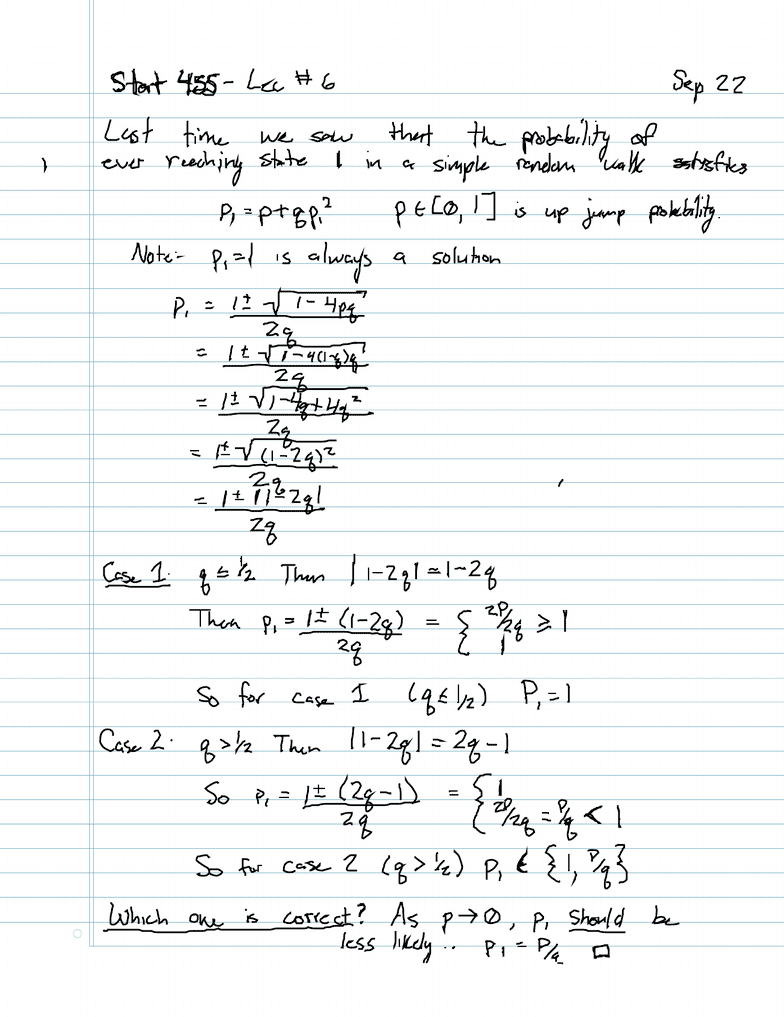 Stat 455 - Lec # 6 Sep 22
Last time we saw that the probability of
ever reaching state 1 in a simple random walk satisfies
p₁ = p + qp₁² p ∈ [0, 1] is up jump probability.
Note:- p₁ = 1 is always a solution
p₁ = (1 ± √(1 - 4pq)) / 2q
= (1 ± √(1 - 4(1-q)q)) / 2q
= (1 ± √(1 - 4q + 4q²)) / 2q
= (1 ± √((1-2q)²)) / 2q
= (1 ± |1 - 2q|) / 2q
Case 1: q ≤ 1/2 Then |1-2q| = 1-2q
Then p₁ = (1 ± (1-2q)) / 2q = { 2p/2q ≥ 1
{ 1
So for case 1 (q ≤ 1/2) P₁ = 1
Case 2: q > 1/2 Then |1-2q| = 2q-1
So p₁ = (1 ± (2q-1)) / 2q = { 1
{ 2p/2q = p/q < 1
So for case 2 (q > 1/2) P₁ ∈ {1, p/q}
Which one is correct? As p → 0, p₁ should be
less likely .. p₁ = p/q □